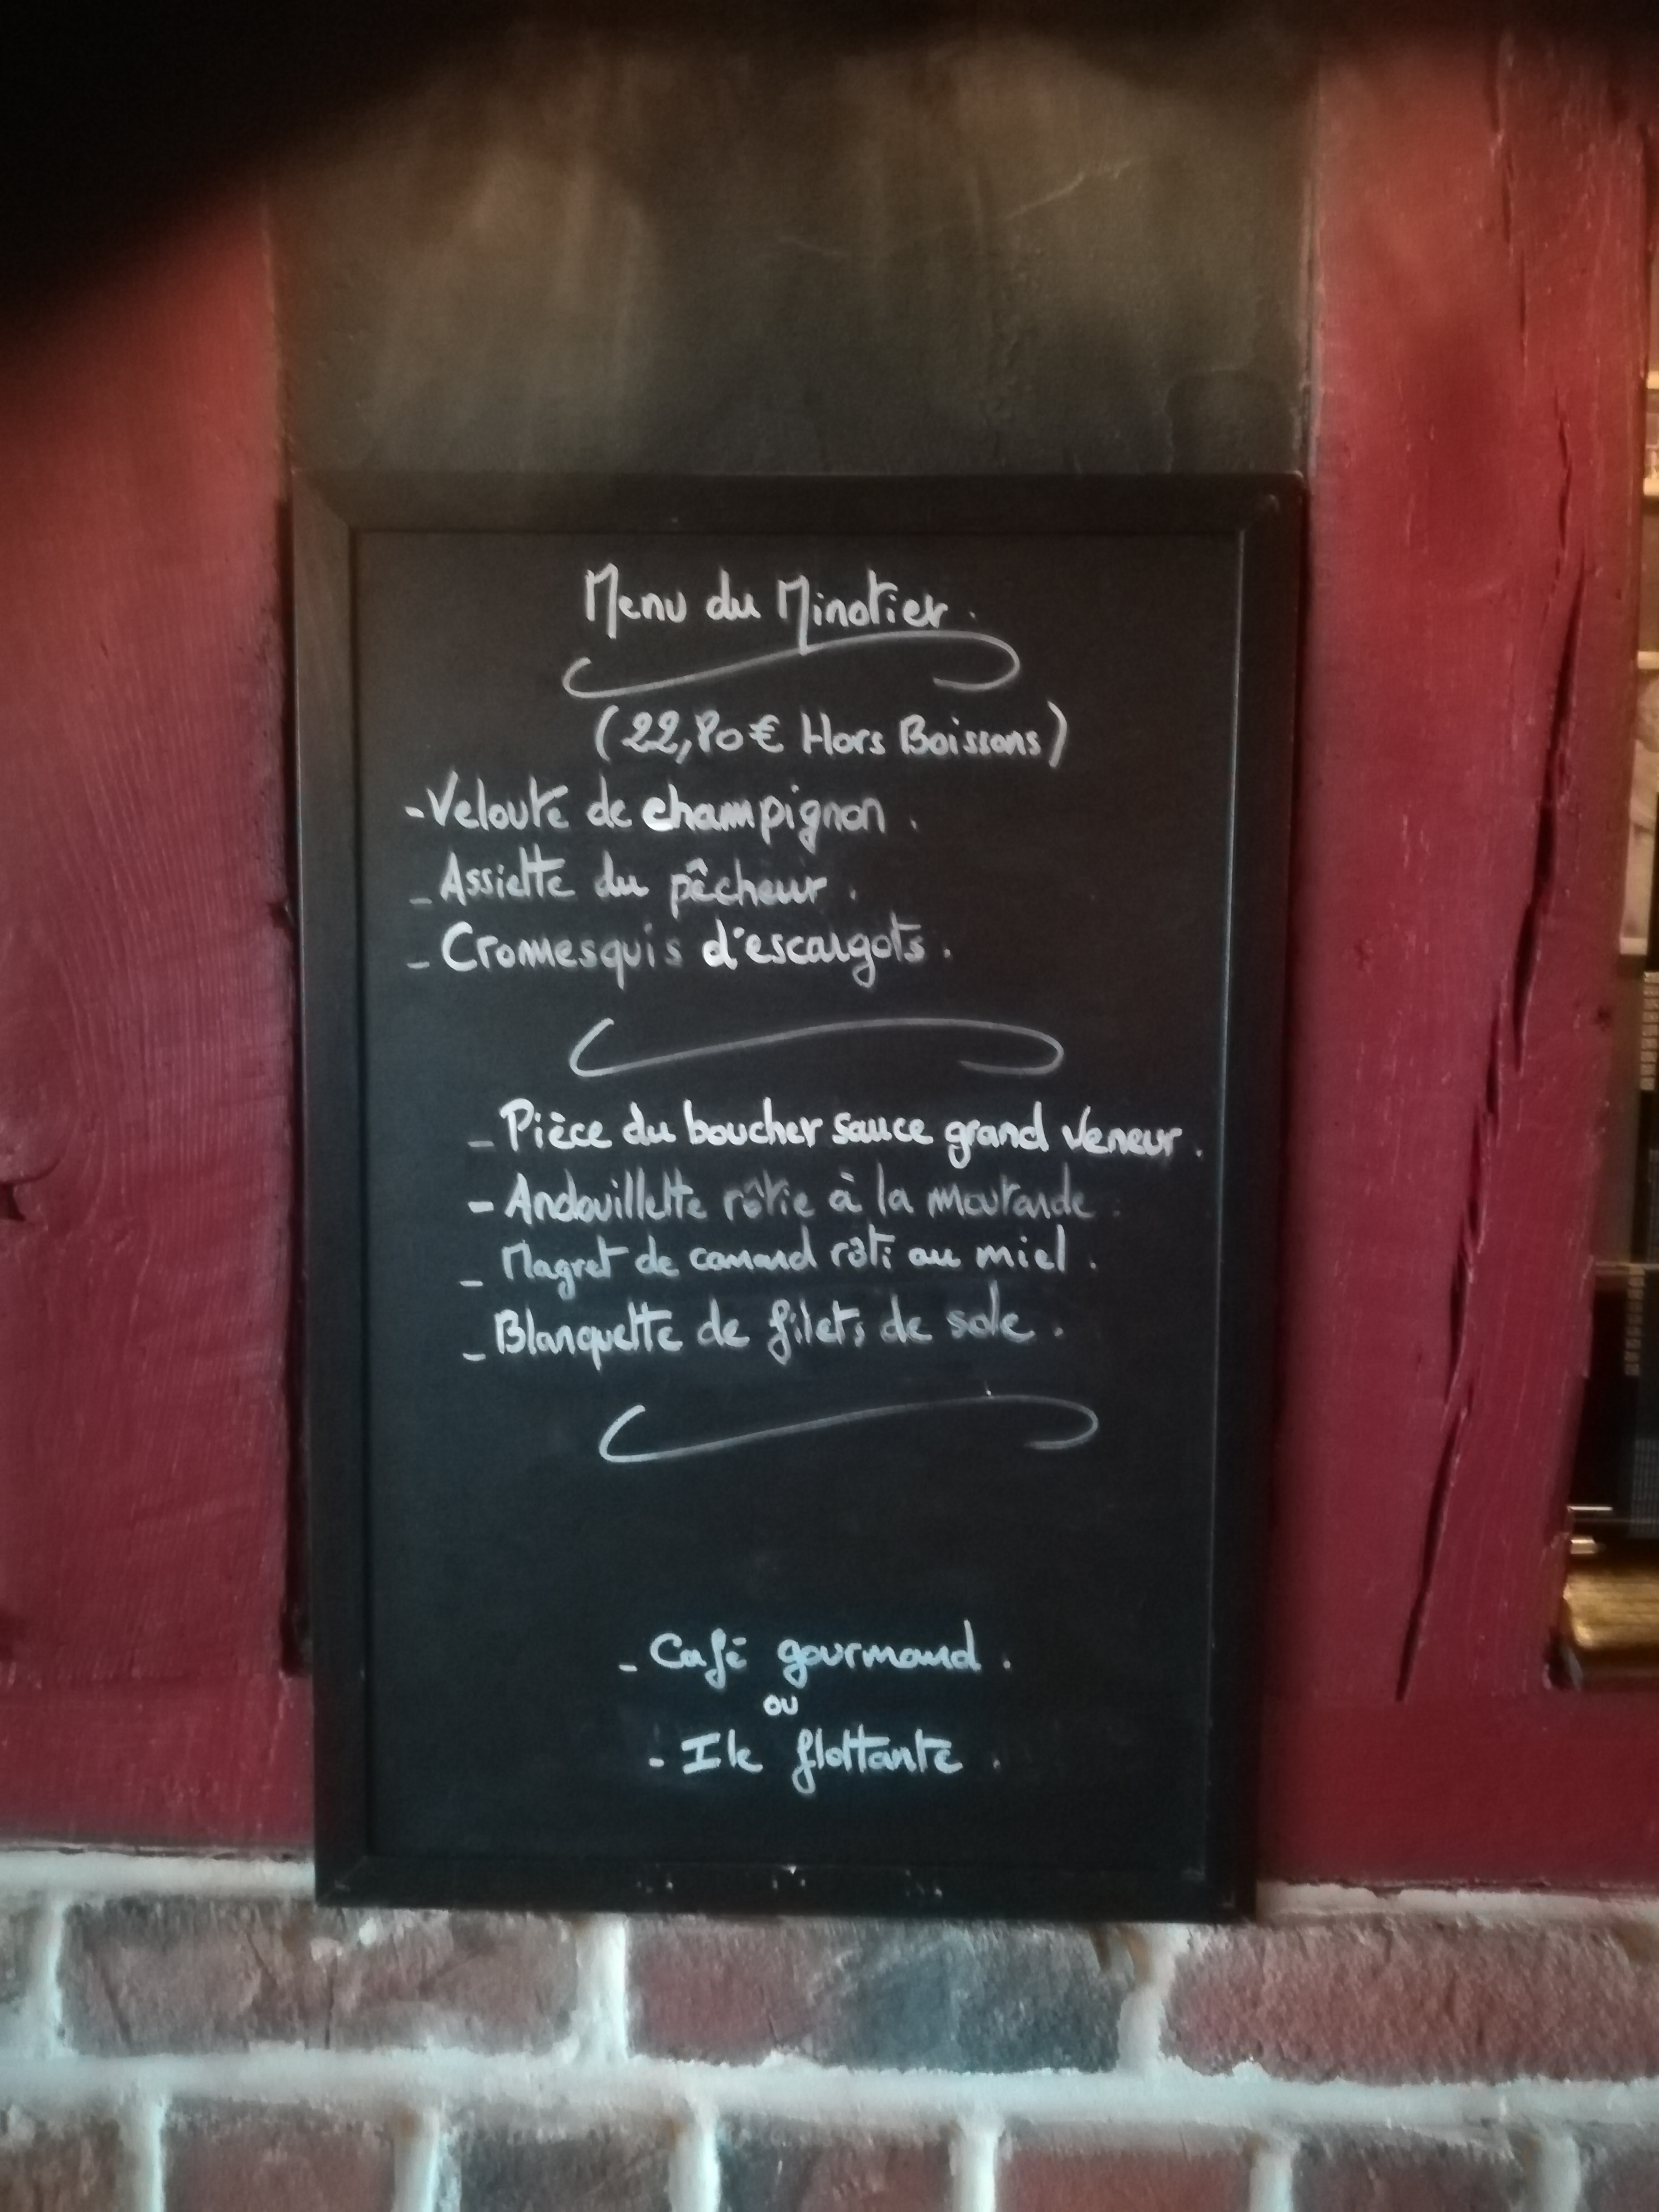 Menu du Minotier.
(22,80€ Hors Boissons)
- Velouté de champignon.
- Assiette du pêcheur.
- Cromesquis d'escargots.
- Pièce du boucher sauce grand Veneur.
- Andouillette rôtie à la moutarde.
- Magret de canard rôti au miel.
- Blanquette de filets de sole.
- Café gourmand.
ou
- Ile flottante.